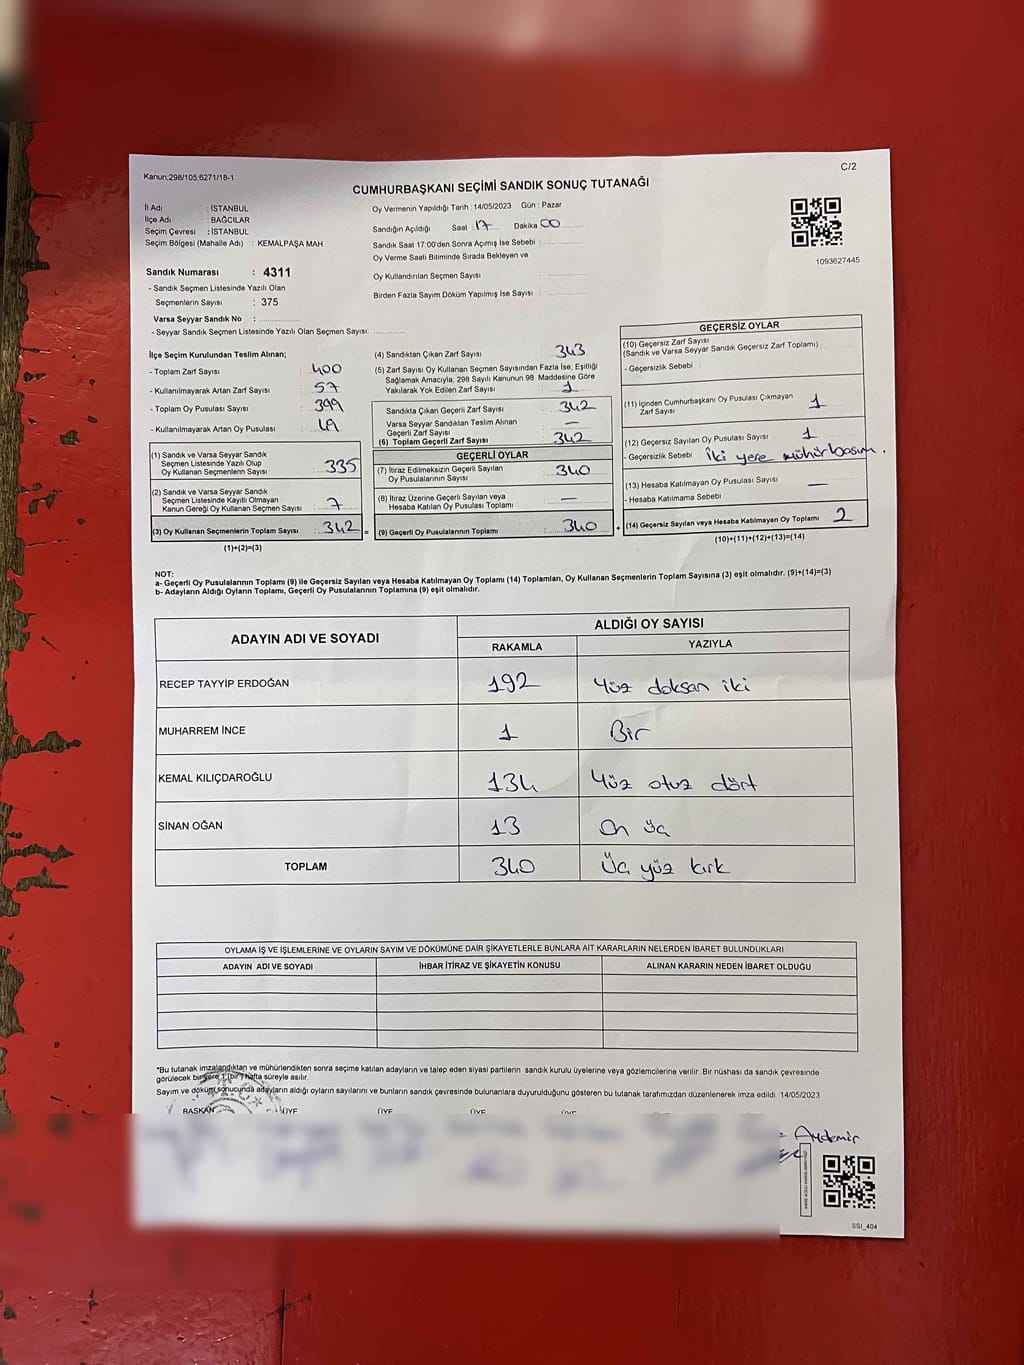 Kanun;298/105,6271/18-1
C/2
CUMHURBAŞKANI SEÇİMİ SANDIK SONUÇ TUTANAĞI
İl Adı : İSTANBUL
İlçe Adı : BAĞCILAR
Seçim Çevresi : İSTANBUL
Seçim Bölgesi (Mahalle Adı) : KEMALPAŞA MAH
Oy Vermenin Yapıldığı Tarih :14/05/2023 Gün : Pazar
Sandığın Açıldığı Saat 17 Dakika 00
Sandık Saat 17:00'den Sonra Açımış İse Sebebi :
Oy Verme Saati Bitiminde Sırada Bekleyen ve
Oy Kullandırılan Seçmen Sayısı :
Birden Fazla Sayım Döküm Yapılmış İse Sayısı :
1093627445
Sandık Numarası : 4311
- Sandık Seçmen Listesinde Yazılı Olan
Seçmenlerin Sayısı : 375
Varsa Seyyar Sandık No :
- Seyyar Sandık Seçmen Listesinde Yazılı Olan Seçmen Sayısı:
İlçe Seçim Kurulundan Teslim Alınan;
- Toplam Zarf Sayısı : 400
- Kullanılmayarak Artan Zarf Sayısı : 57
- Toplam Oy Pusulası Sayısı : 399
- Kullanılmayarak Artan Oy Pusulası :
(1) Sandık ve Varsa Seyyar Sandık
Seçmen Listesinde Yazılı Olup
Oy Kullanan Seçmenlerin Sayısı : 335
(2) Sandık ve Varsa Seyyar Sandık
Seçmen Listesinde Kayıtlı Olmayan
Kanun Gereği Oy Kullanan Seçmen Sayısı : 7
(3) Oy Kullanan Seçmenlerin Toplam Sayısı : 342 =
(1)+(2)=(3)
(4) Sandıktan Çıkan Zarf Sayısı : 343
(5) Zarf Sayısı Oy Kullanan Seçmen Sayısından Fazla İse, Eşitliği
Sağlamak Amacıyla, 298 Sayılı Kanunun 98. Maddesine Göre
Yakılarak Yok Edilen Zarf Sayısı : 1
Sandıkta Çıkan Geçerli Zarf Sayısı : 342
Varsa Seyyar Sandıktan Teslim Alınan
Geçerli Zarf Sayısı : —
(6) Toplam Geçerli Zarf Sayısı : 342
GEÇERLİ OYLAR
(7) İtiraz Edilmeksizin Geçerli Sayılan
Oy Pusulalarının Sayısı : 340
(8) İtiraz Üzerine Geçerli Sayılan veya
Hesaba Katılan Oy Pusulası Toplamı : —
(9) Geçerli Oy Pusulalarının Toplamı : 340 +
GEÇERSİZ OYLAR
(10) Geçersiz Zarf Sayısı
(Sandık ve Varsa Seyyar Sandık Geçersiz Zarf Toplamı) :
- Geçersizlik Sebebi :
(11) İçinden Cumhurbaşkanı Oy Pusulası Çıkmayan
Zarf Sayısı : 1
(12) Geçersiz Sayılan Oy Pusulası Sayısı : 1
- Geçersizlik Sebebi : İki yere mühür basım.
(13) Hesaba Katılmayan Oy Pusulası Sayısı : —
- Hesaba Katılmama Sebebi :
(14) Geçersiz Sayılan veya Hesaba Katılmayan Oy Toplamı : 2
(10)+(11)+(12)+(13)=(14)
NOT:
a- Geçerli Oy Pusulalarının Toplamı (9) ile Geçersiz Sayılan veya Hesaba Katılmayan Oy Toplamı (14) Toplamları, Oy Kullanan Seçmenlerin Toplam Sayısına (3) eşit olmalıdır. (9)+(14)=(3)
b- Adayların Aldığı Oyların Toplamı, Geçerli Oy Pusulalarının Toplamına (9) eşit olmalıdır.
ADAYIN ADI VE SOYADI
ALDIĞI OY SAYISI
RAKAMLA YAZIYLA
RECEP TAYYİP ERDOĞAN 192 Yüz doksan iki
MUHARREM İNCE 1 Bir
KEMAL KILIÇDAROĞLU 134 Yüz otuz dört
SİNAN OĞAN 13 On üç
TOPLAM 340 Üç yüz kırk
OYLAMA İŞ VE İŞLEMLERİNE VE OYLARIN SAYIM VE DÖKÜMÜNE DAİR ŞİKAYETLERLE BUNLARA AİT KARARLARIN NELERDEN İBARET BULUNDUKLARI
ADAYIN ADI VE SOYADI İHBAR İTİRAZ VE ŞİKAYETİN KONUSU ALINAN KARARIN NEDEN İBARET OLDUĞU
*Bu tutanak imzalandıktan ve mühürlendikten sonra seçime katılan adayların ve talep eden siyasi partilerin sandık kurulu üyelerine veya gözlemcilerine verilir. Bir nüshası da sandık çevresinde
görülecek bir yere 1 (bir) hafta süreyle asılır.
Sayım ve döküm sonucunda adayların aldığı oyların sayılarını ve bunların sandık çevresinde bulunanlara duyurulduğunu gösteren bu tutanak tarafımızdan düzenlenerek imza edildi. 14/05/2023
BAŞKAN ÜYE ÜYE ÜYE ÜYE
Aydemir
SSI_404